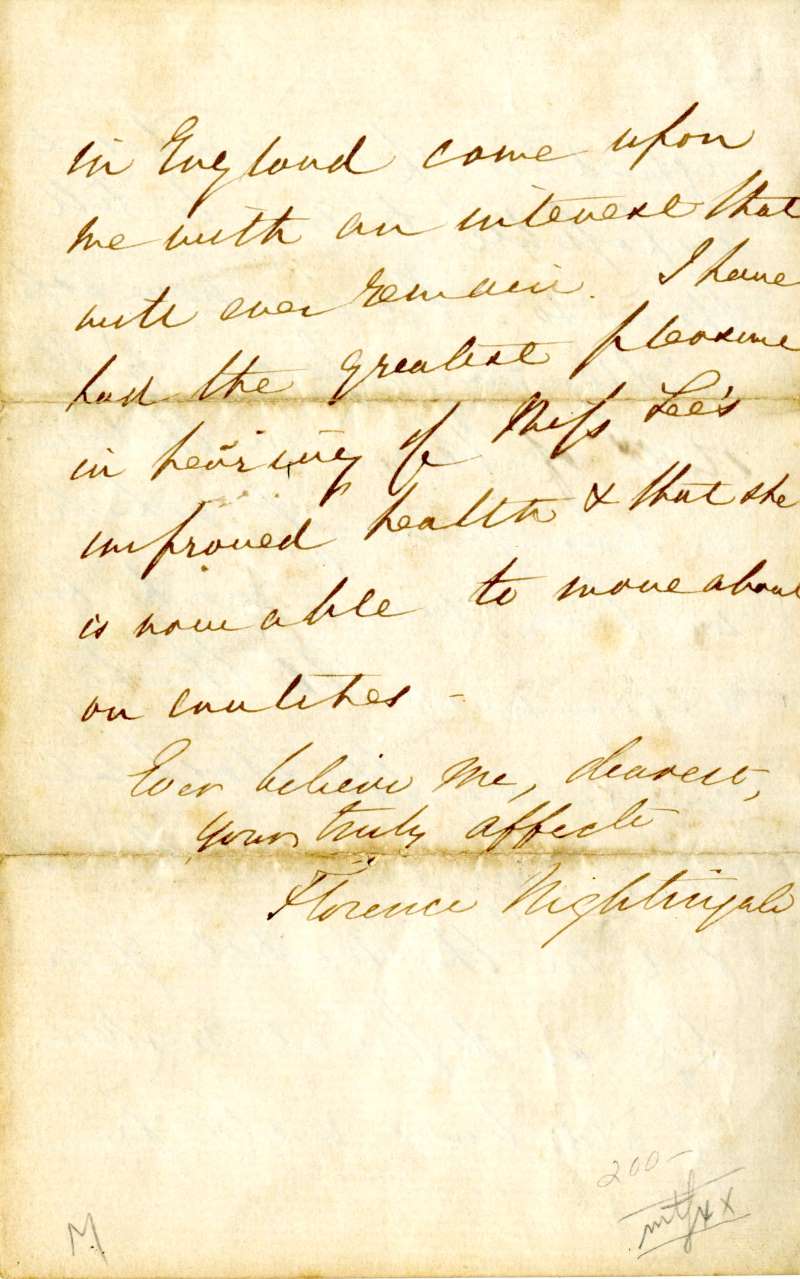 in England come upon
me with an interest that
will ever remain. I have
had the greatest pleasure
in hearing of Miss Lee's
improved health & that she
is now able to move about
on crutches -
Ever believe me, dearest,
yours truly affecte
Florence Nightingale
200-
M